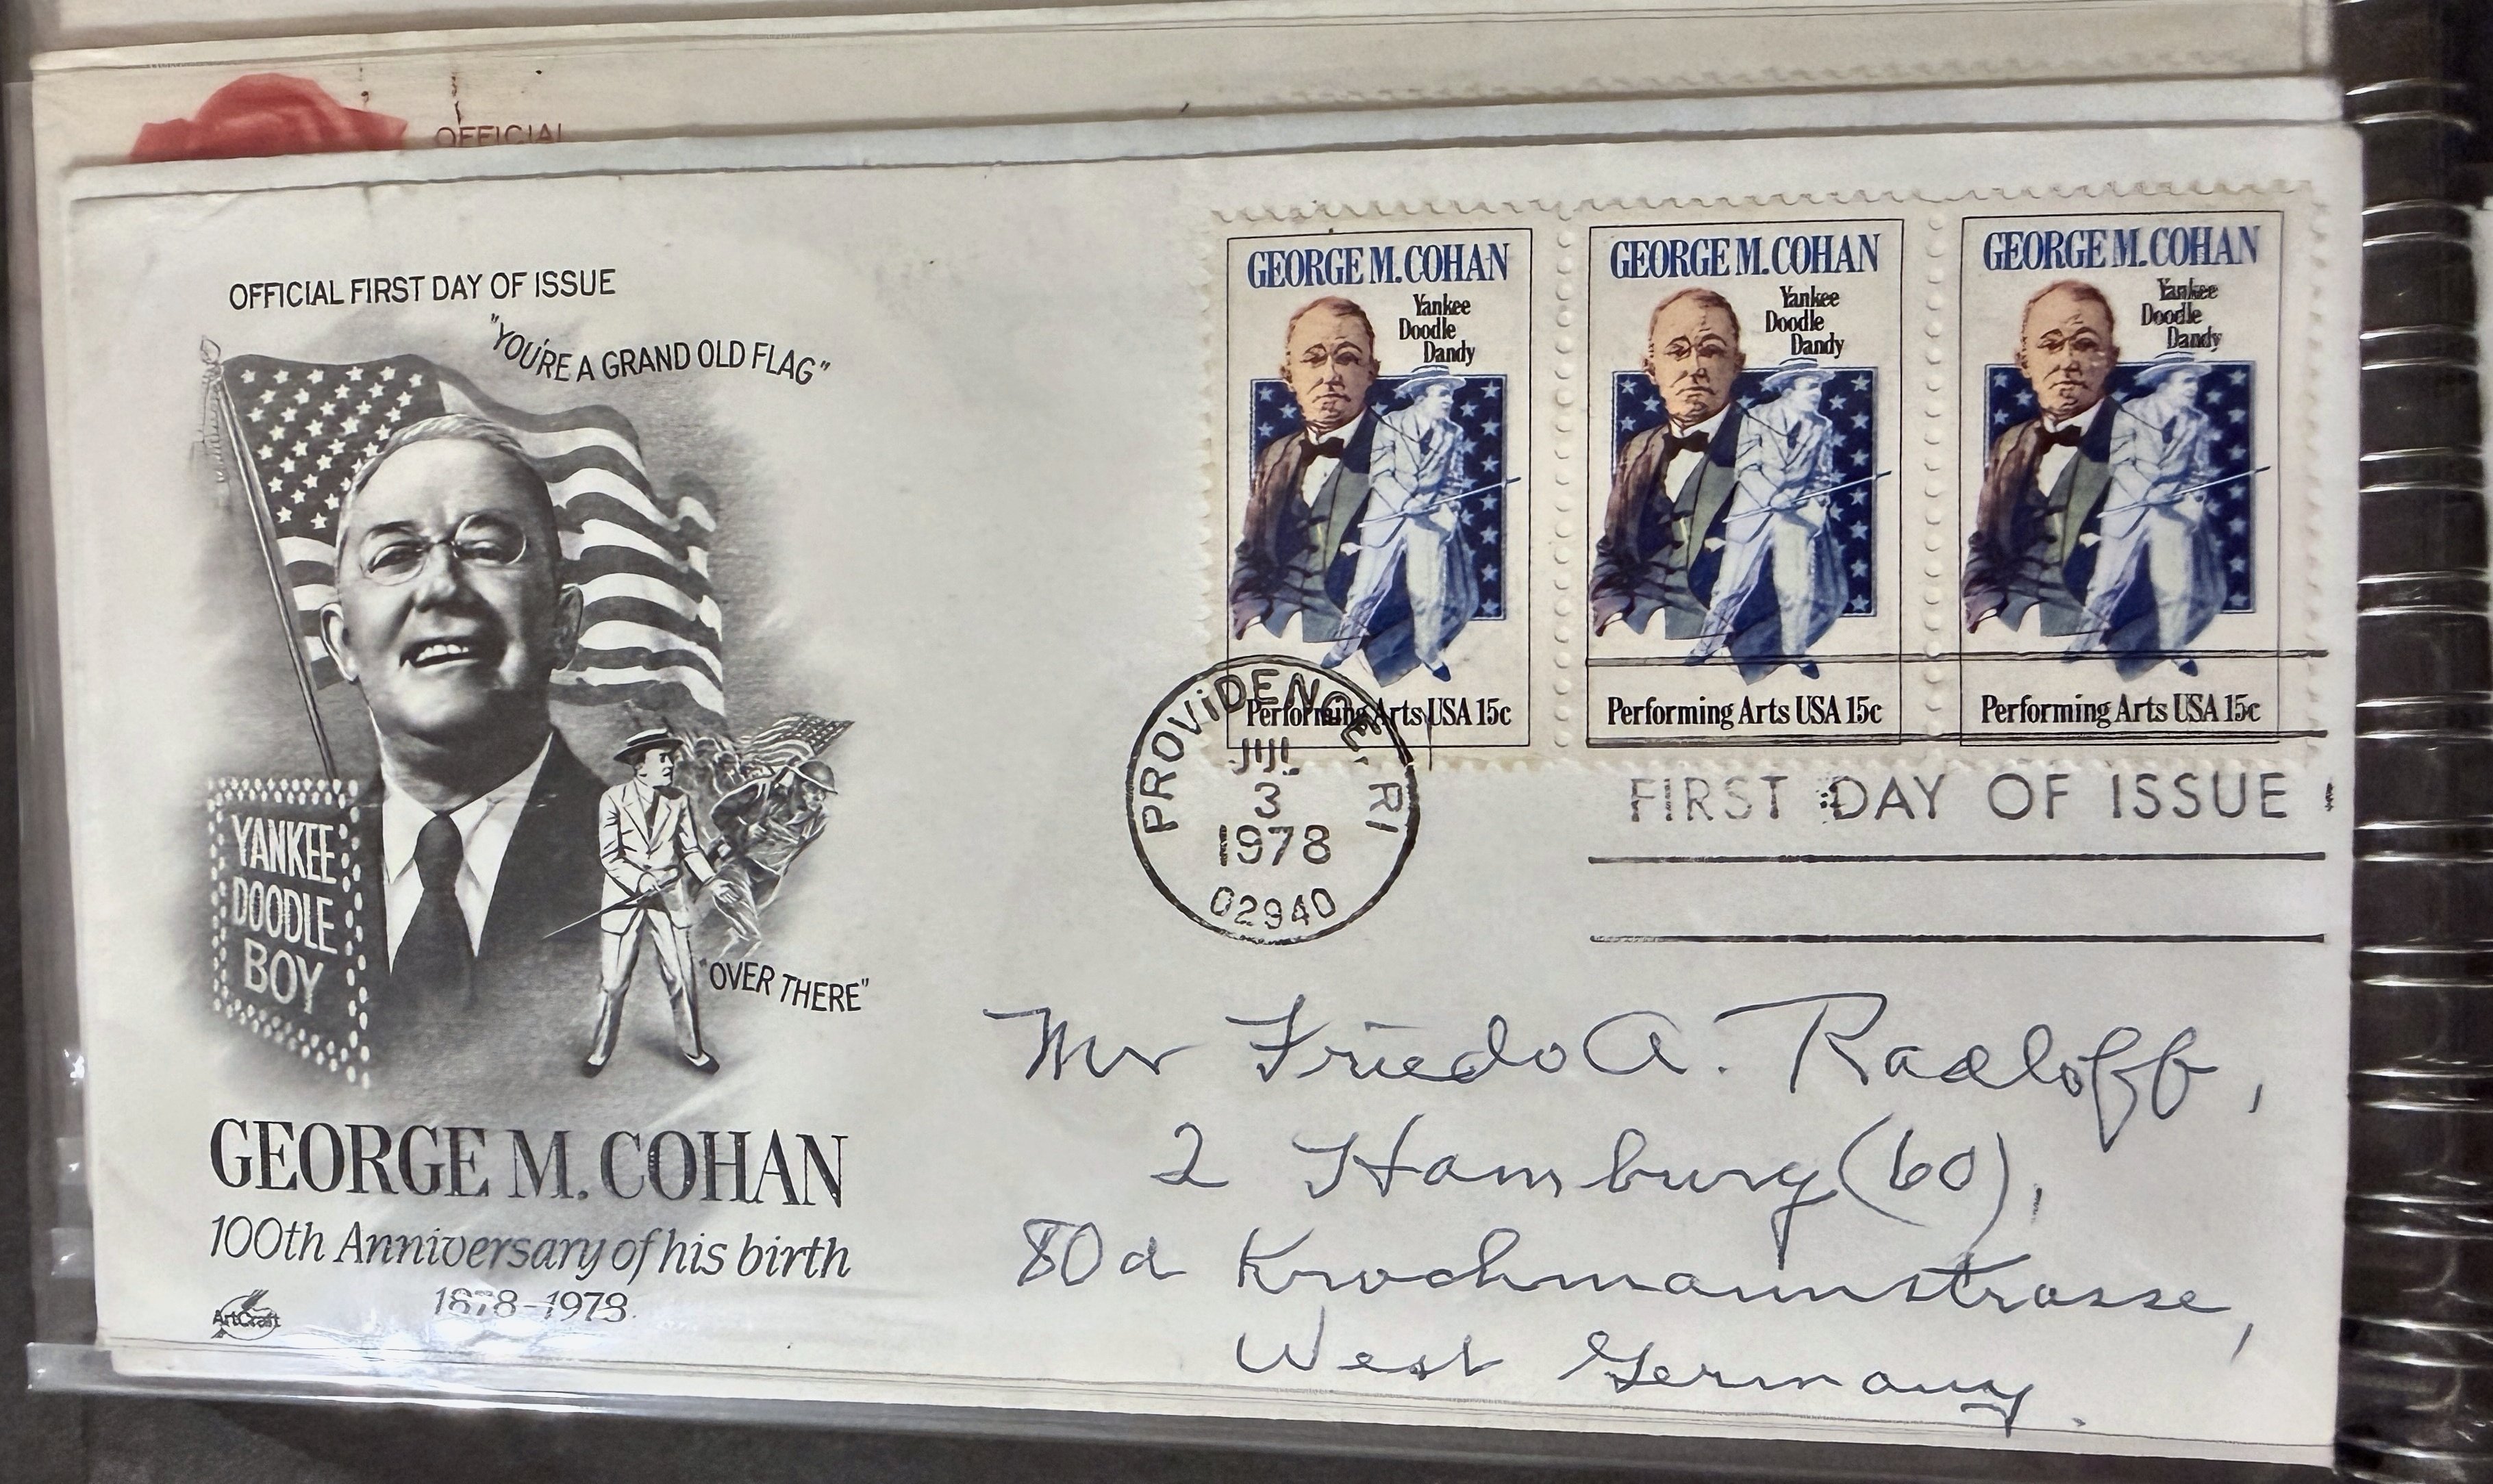 OFFICIAL
OFFICIAL FIRST DAY OF ISSUE
"YOU'RE A GRAND OLD FLAG"
YANKEE
DOODLE
BOY
"OVER THERE"
GEORGE M. COHAN
100th Anniversary of his birth
1878-1978
ArtCraft
GEORGE M. COHAN
Yankee
Doodle
Dandy
Performing Arts USA 15c
GEORGE M. COHAN
Yankee
Doodle
Dandy
Performing Arts USA 15c
GEORGE M. COHAN
Yankee
Doodle
Dandy
Performing Arts USA 15c
PROVIDENCE, RI
JUL
3
1978
02940
FIRST DAY OF ISSUE
Mr Friedo A. Radloff,
2 Hamburg (60),
80d Krochmannstrasse,
West Germany.